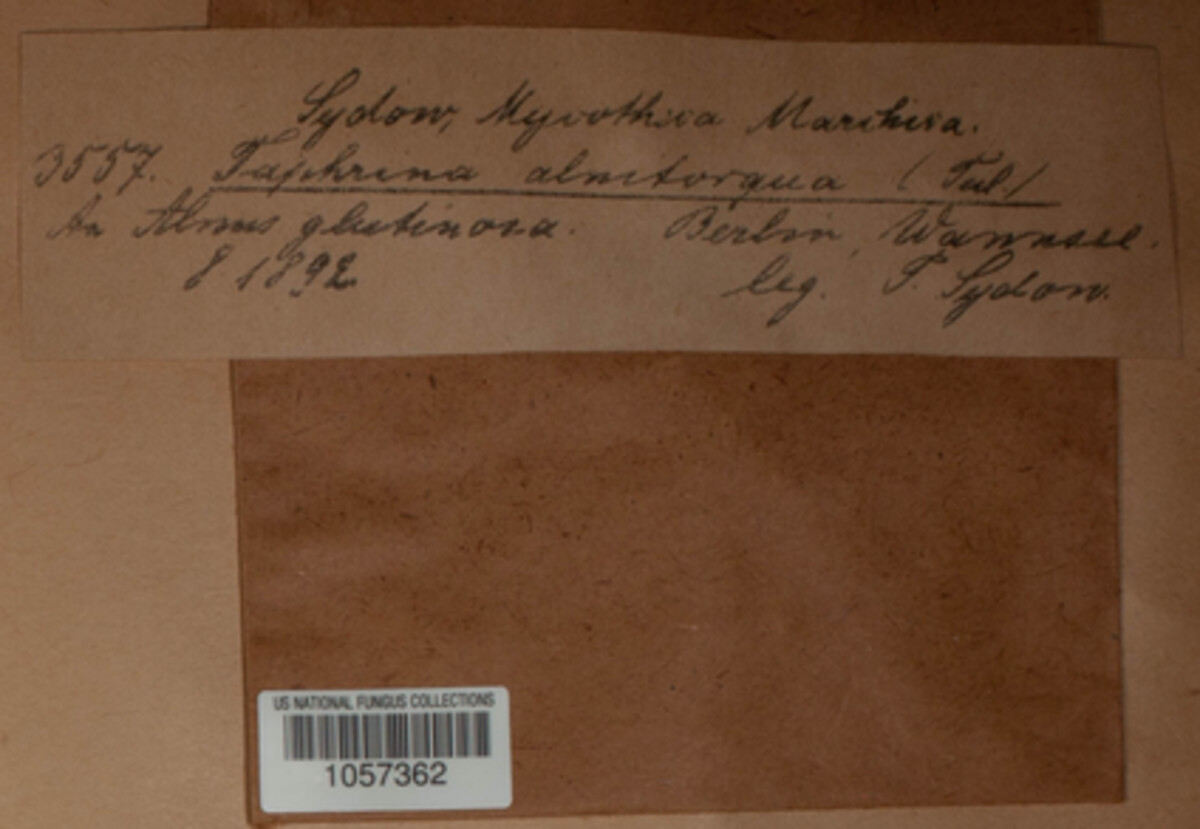 Sydow, Mycotheca Marchica.
3557. Taphrina alnitorqua (Tul.)
An Alnus glutinosa. Berlin, Wannsee.
8 1892. leg. P. Sydow.
US NATIONAL FUNGUS COLLECTIONS
1057362